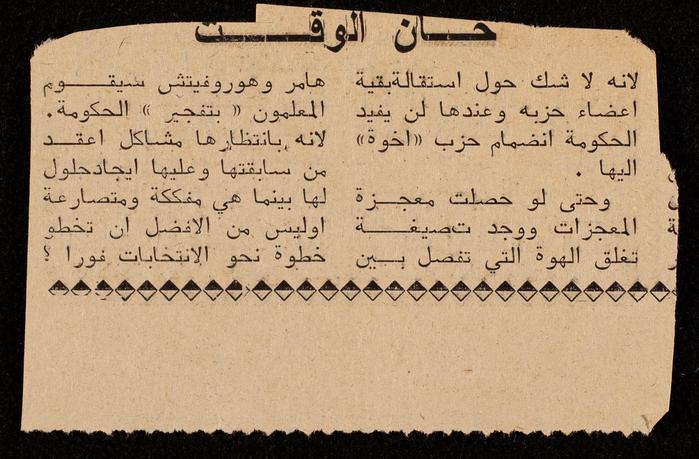 حان الوقت
لانه لا شك حول استقالةبقية
اعضاء حزبه وعندها لن يفيد
الحكومة انضمام حزب «اخوة»
اليها .
وحتى لو حصلت معجزة
المعجزات ووجد تصيغة
تغلق الهوة التي تفصل بين
هامر وهوروفيتش سيقوم
المعلمون « بتفجير » الحكومة.
لانه بانتظارها مشاكل اعقد
من سابقتها وعليها ايجادحلول
لها بينما هي مفككة ومتصارعة
اوليس من الافضل ان تخطو
خطوة نحو الانتخابات فورا ؟